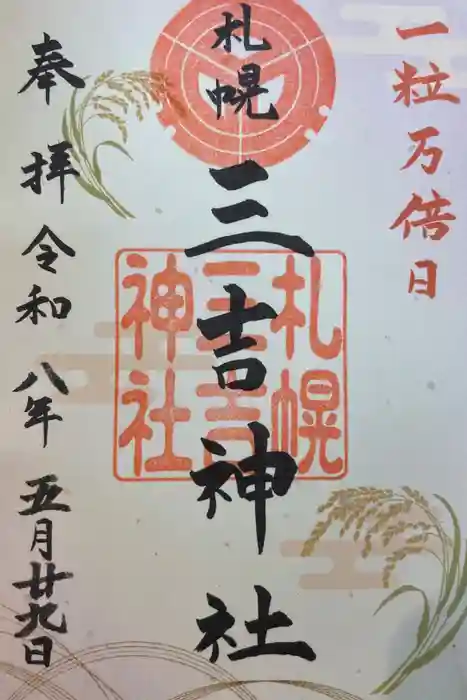 一粒万倍日
札幌
三吉神社
札幌
三吉
神社
奉拝令和八年五月廿九日